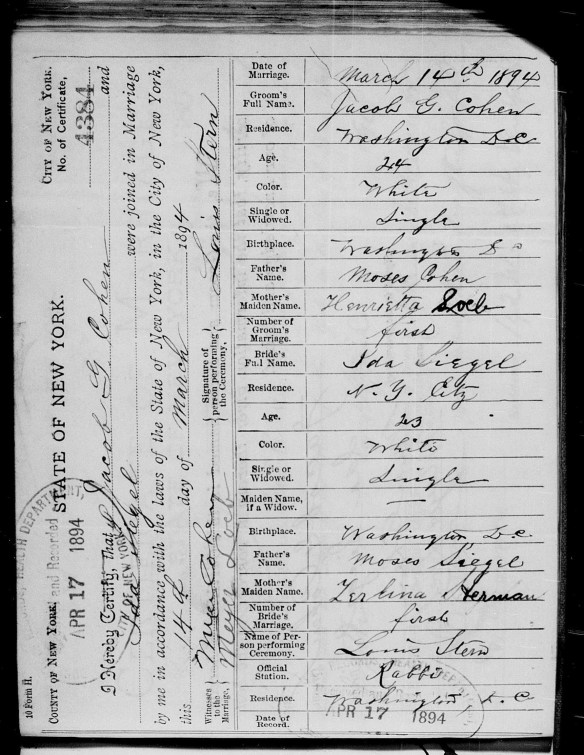 10 Form H.
COUNTY OF NEW YORK.
STATE OF NEW YORK.
and Recorded
APR 17 1894
HEALTH DEPARTMENT,
CITY OF NEW YORK
CITY OF NEW YORK.
No. of Certificate,
4384
I Hereby Certify, that Jacob G Cohen and
Ida Siegel were joined in Marriage
by me in accordance with the laws of the State of New York, in the City of New York,
this 14th day of March 1894
Witnesses to the Marriage.
Cohen
Meyer Loeb
Signature of person performing the Ceremony.
Louis Stern
Date of Marriage. March 14th 1894
Groom's Full Name. Jacob G. Cohen
Residence. Washington D.C
Age. 24
Color. White
Single or Widowed. Single
Birthplace. Washington D C
Father's Name. Moses Cohen
Mother's Maiden Name. Henrietta Loeb
Number of Groom's Marriage. first
Bride's Full Name. Ida Siegel
Residence. N. Y. City
Age. 23
Color. White
Single or Widowed. Single
Maiden Name, if a Widow. —
Birthplace. Washington D.C.
Father's Name. Moses Siegel
Mother's Maiden Name. Zerlina Herman
Number of Bride's Marriage. first
Name of Person performing Ceremony. Louis Stern
Official Station. Rabbi
Residence. Washington, D.C
Date of Record. APR 17 1894